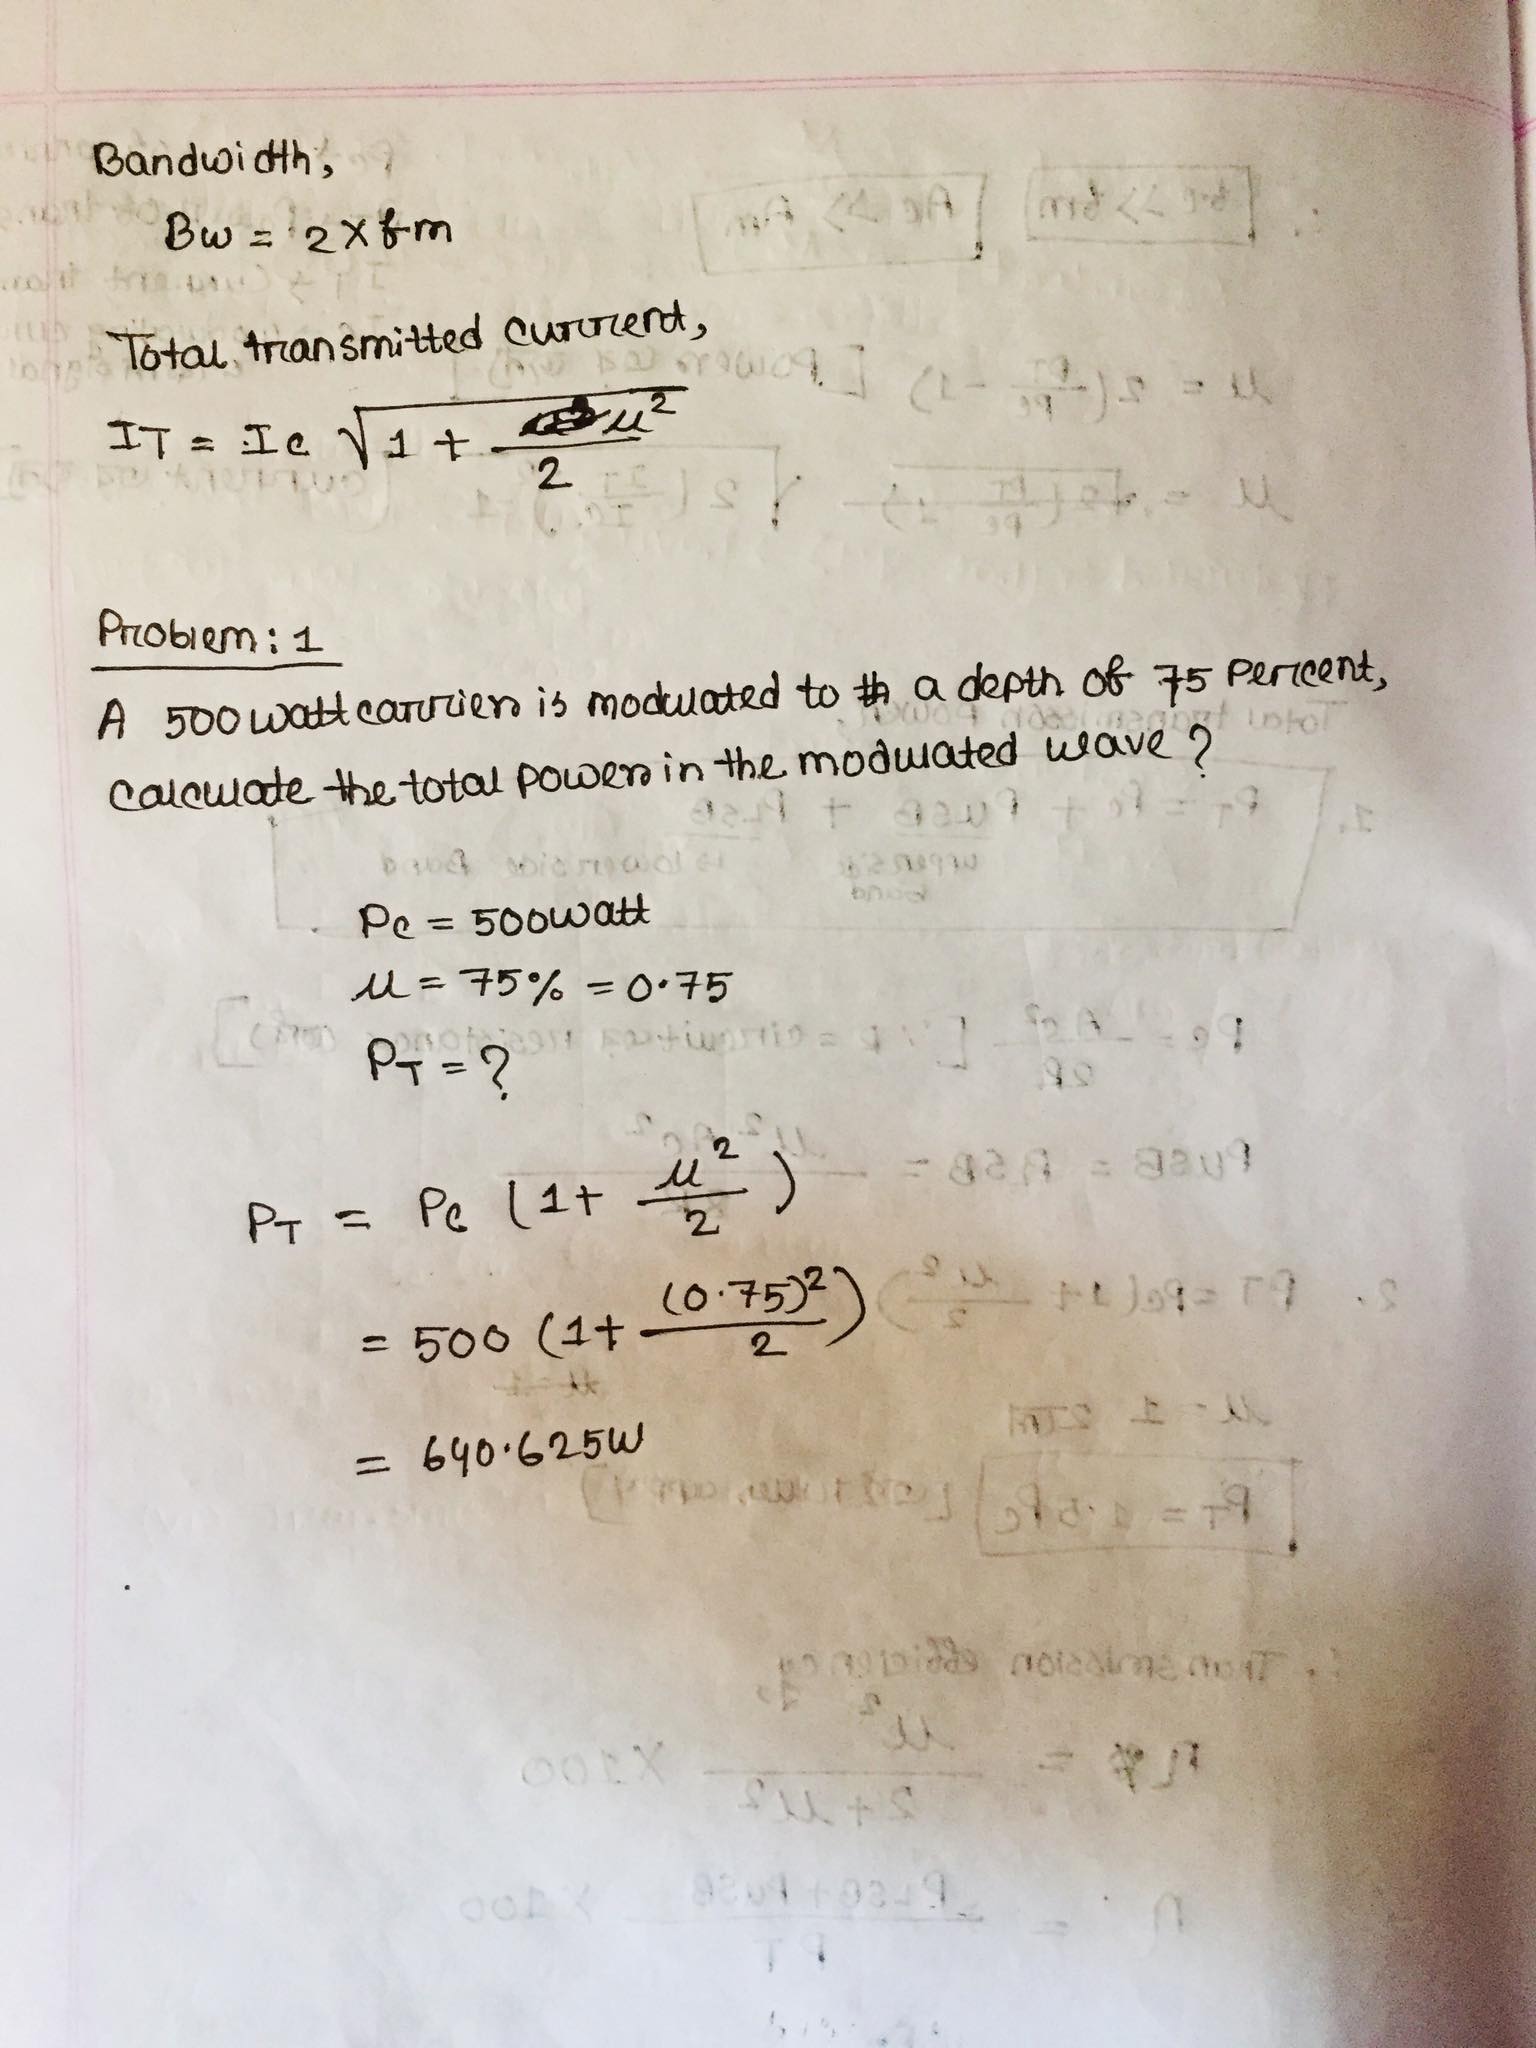 Bandwidth,
BW = 2 × fm
Total transmitted current,
IT = Ic √(1 + μ²/2)
Problem: 1
A 500 watt carrier is modulated to a depth of 75 percent,
calculate the total power in the modulated wave?
Pc = 500 watt
μ = 75% = 0.75
PT = ?
PT = Pc (1 + μ²/2)
= 500 (1 + (0.75)²/2)
= 640.625W